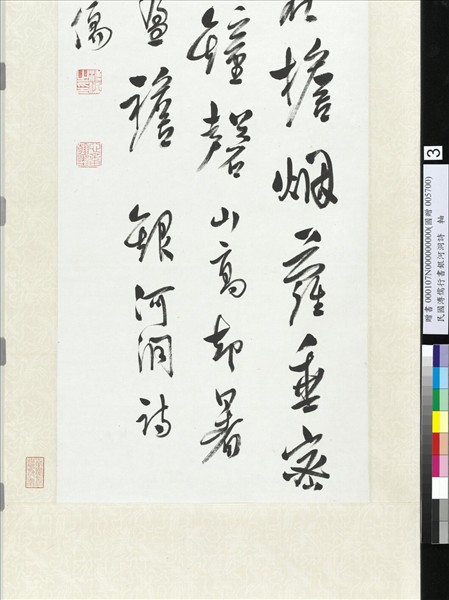 檐烟蘿垂密
鐘磬山高却暑
盈襜 銀河洞詩
儒
3
贈書 000107N000000000(國贈 005700)
民國溥儒行書銀河洞詩 軸